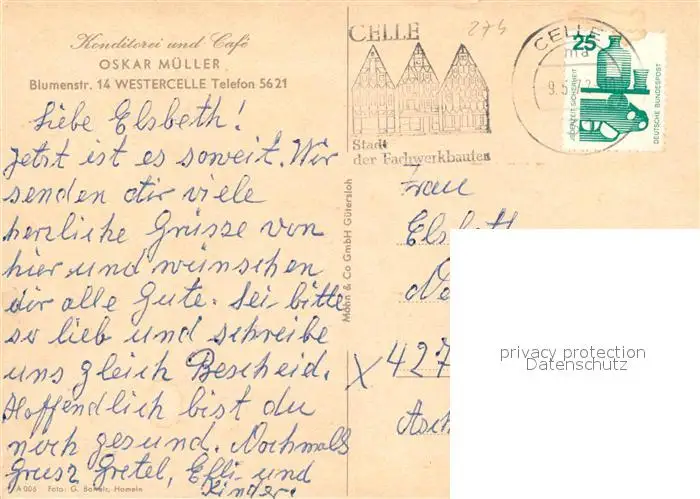 Konditorei und Café
OSKAR MÜLLER
Blumenstr. 14 WESTERCELLE Telefon 5621
Liebe Elsbeth!
jetzt ist es soweit. Wir
senden dir viele
herzliche Grüsse von
hier und wünschen
dir alle Gute. Sei bitte
so lieb und schreibe
uns gleich Bescheid.
Hoffendlich bist du
noch gesund. Nochmals
Grusz Gretel, Elli und
Kinder.
A 006 Foto: G. Hameln
Mohn & Co GmbH Gütersloh
CELLE
Stadt
der Fachwerkbauten
274
CELLE
9.5.72
25
JEDERZEIT SICHERHEIT
DEUTSCHE BUNDESPOST
Frau
Elsbeth
Ne
X 427
Asch
privacy protection
Datenschutz